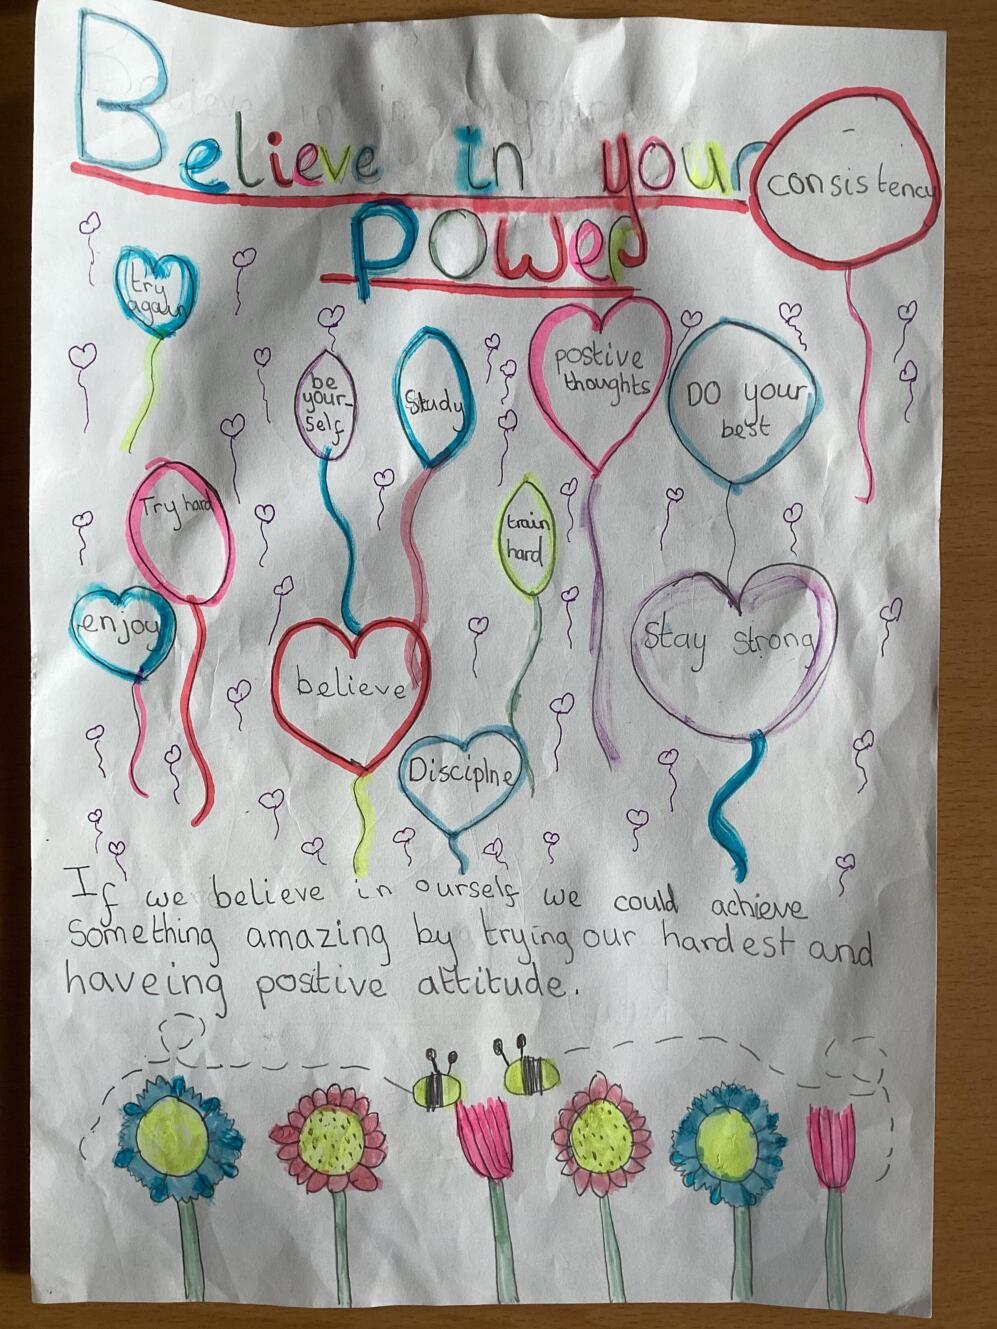 Believe in your
power
consistency
try
again
be
your-
self
Study
postive
thoughts
DO your
best
Try hard
train
hard
enjoy
believe
Stay strong
Disciplne
If we believe in ourself we could achieve
Something amazing by trying our hardest and
haveing positive attitude.